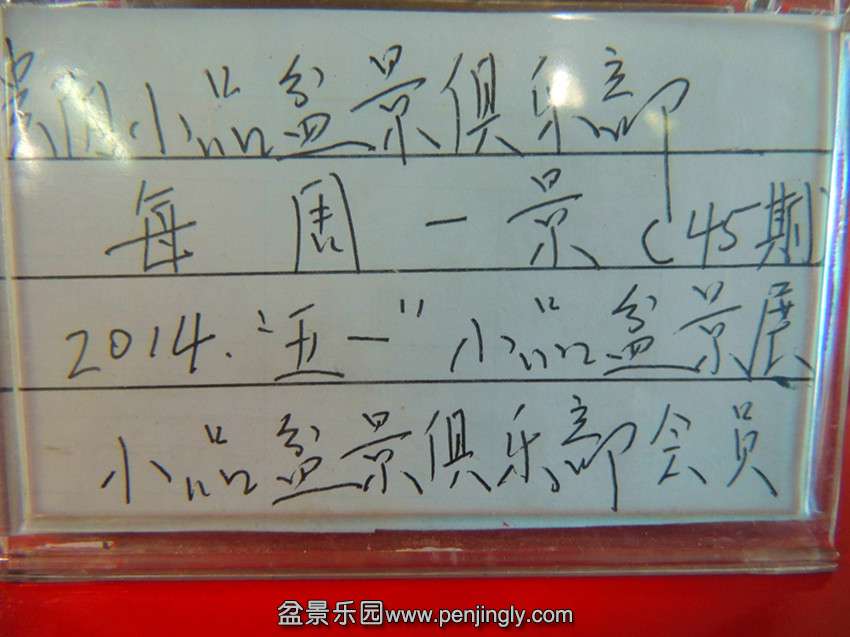 小品盆景俱乐部
每周一景(45期)
2014."五一"小品盆景展
小品盆景俱乐部会员
盆景乐园www.penjingly.com